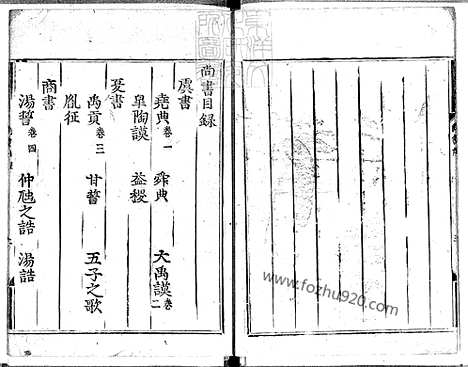 尚書目錄
虞書
堯典卷一 舜典 大禹謨卷二
皐陶謨 益稷
夏書
禹貢卷三 甘誓 五子之歌
胤征
商書
湯誓卷四 仲虺之誥 湯誥
www.fozhu920.com